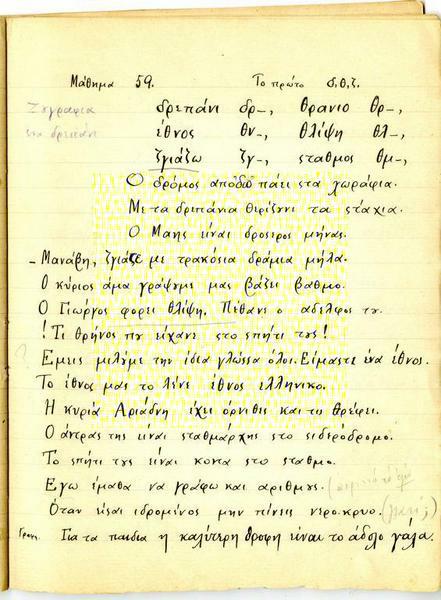 Μάθημα 59. Το πρώτο δ,θ,ζ.
Ζωγραφια δρεπάνι δρ-, θρανιο θρ-,
ένα δρεπάνι έθνος θν-, θλίψη θλ-,
ζγιάζω ζγ-, σταθμος θμ-,
Ο δρόμος αποδώ πάει στα χωράφια.
Με τα δρεπάνια θερίζυνι τα στάχια.
Ο Μαης είναι δροσερος μήνας.
- Μανάβη, ζγιάσε με τρακόσια δράμια μήλα.
Ο κύριος άμα γράψυμε μας βάζει βαθμο.
Ο Γιώργος φορει θλίψη. Πέθανε ο αδελφος τυ.
! Τι θρήνος πυ είχανε στο σπήτι τυς!
Εμεις μιλύμε την ίδια γλώσσα όλοι. Είμαστε ένα έθνος.
Το έθνος μας το λένε έθνος ελληνικο.
Η κυρία Αριάδνη έχει όρνιθες και τις θρέφει.
Ο άντρας της είναι σταθμάρχης στο σιδερόδρομο.
Το σπήτι τυς είναι κοντα στο σταθμο.
Εγω έμαθα να γράφω και αριθμυς.
Όταν είσαι ιδρομένος μην πίνεις νερο κρυο. (γιατί;)
Για τα παιδια η καλύτερη θροφη είναι το άδολο γάλα.